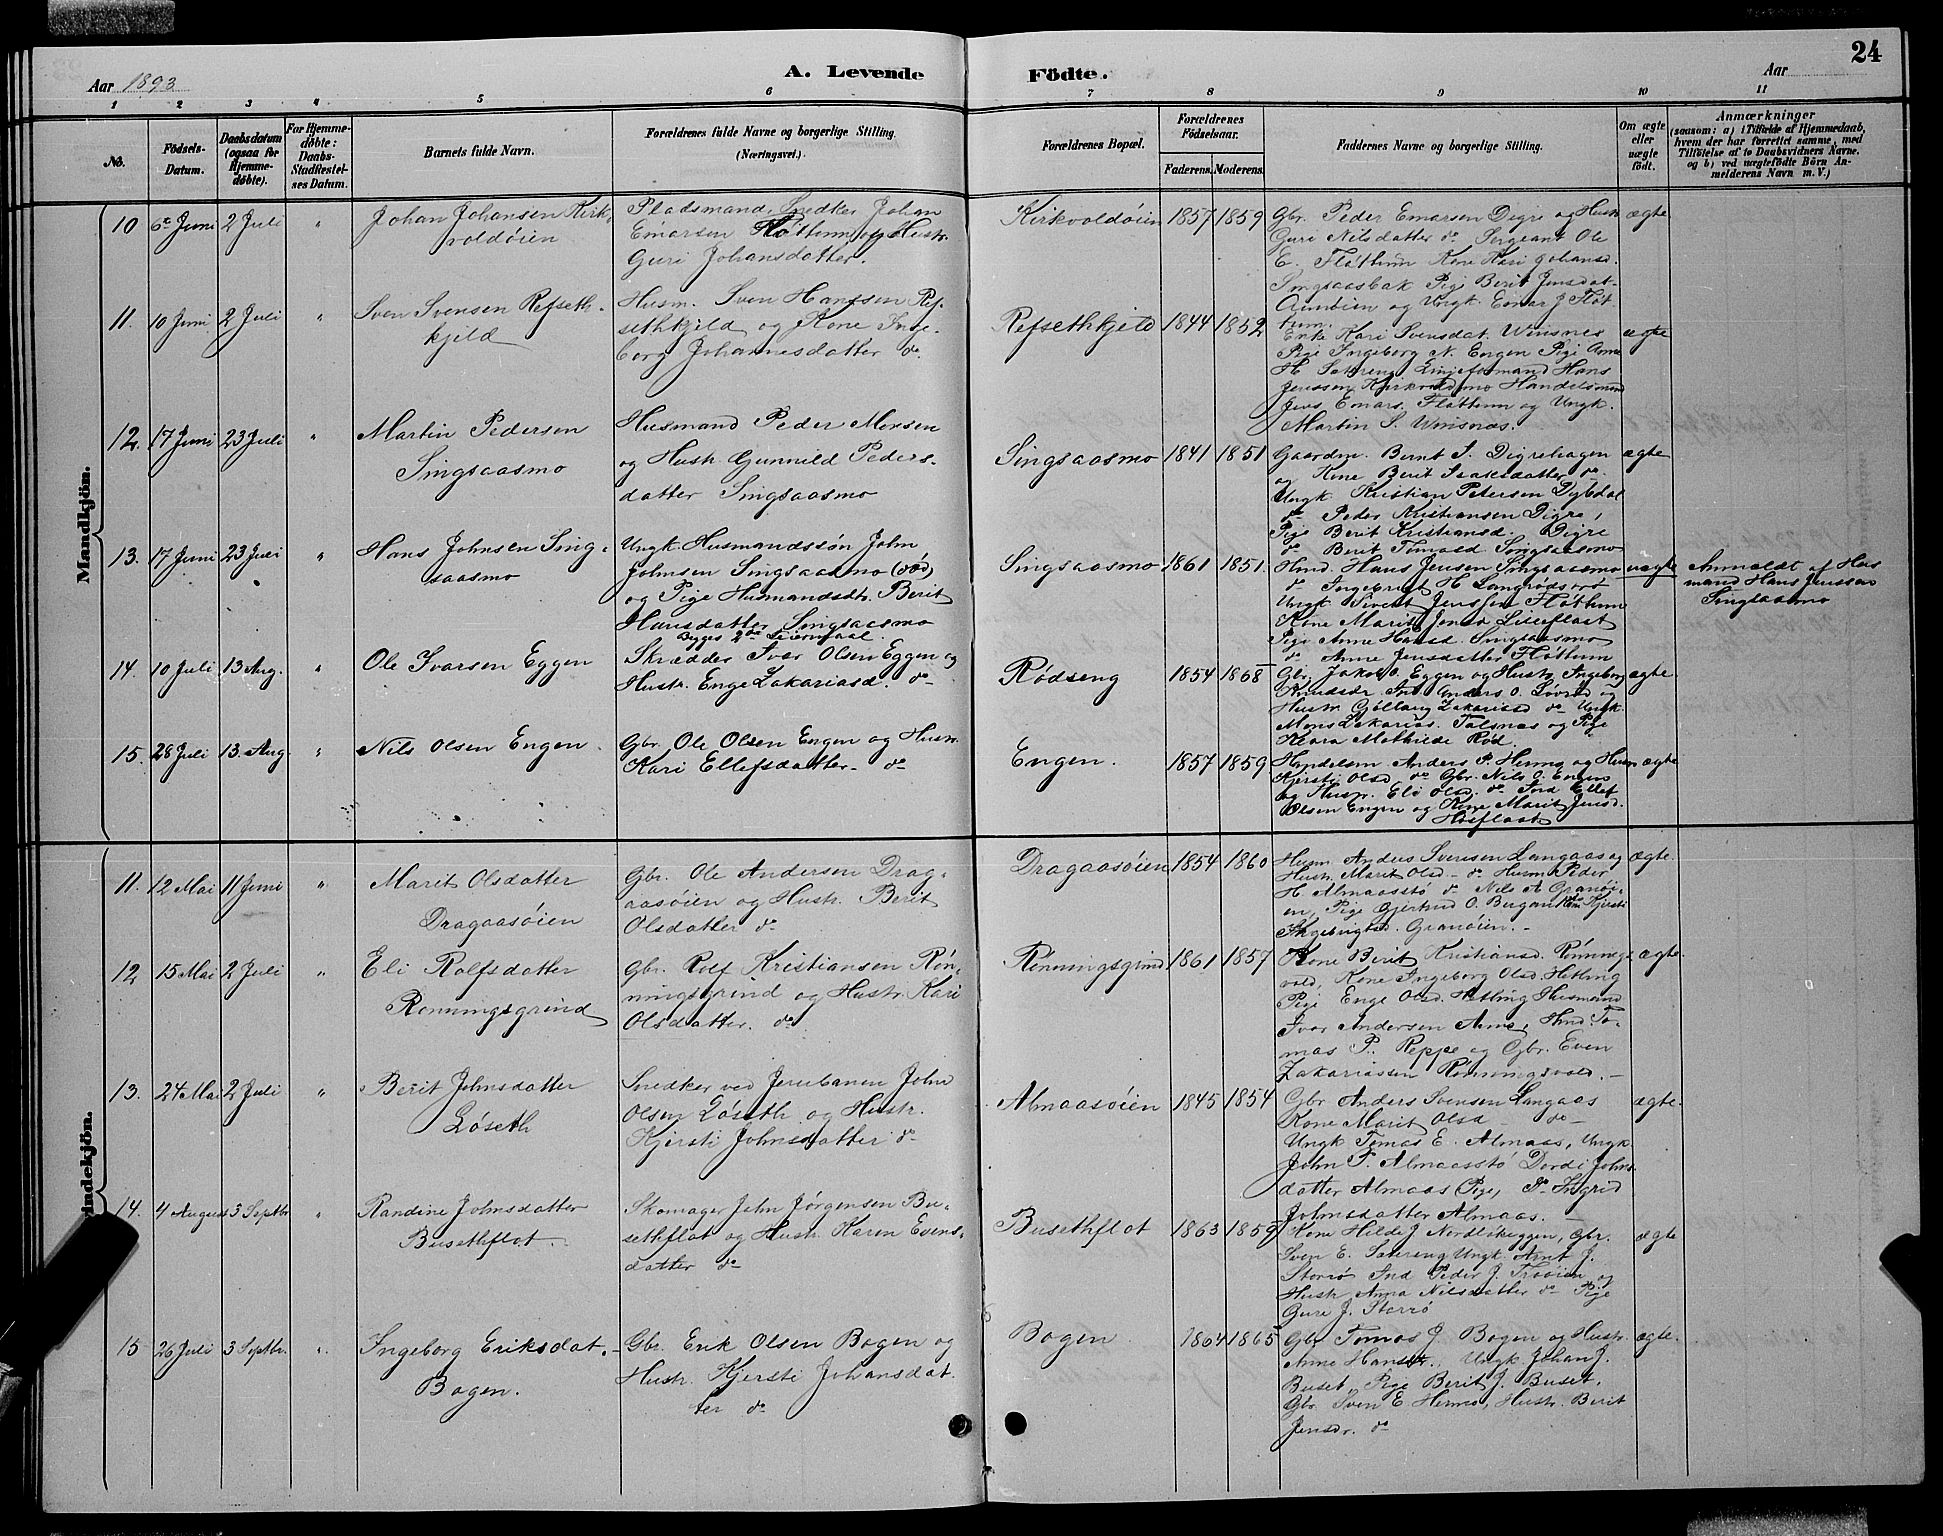 24
Aar 1893
A. Levende Födte.
Aar
1 2 3 4 5 6 7 8 9 10 11
No.
Födsels-Datum.
Daabsdatum (ogsaa for Hjemme-döbte).
For Hjemme-döbte: Daabs-Stadfæstelses Datum.
Barnets fulde Navn.
Forældrenes fulde Navne og borgerlige Stilling. (Næringsvei.)
Forældrenes Bopæl.
Forældrenes Födselsaar.
Faderens. Moderens.
Faddernes Navne og borgerlige Stilling.
Om ægte eller uægte födt.
Anmærkninger
(saasom: a) i Tilfælde af Hjemmedaab, hvem der har forrettet samme, med Tilförelse af to Daabsvidners Navne, og b) ved uægtefödte Börn Anmelderens Navn m. V.)
Mandkjön.
10 6te Juni 2 Juli " Johan Johansen Kirkvoldöien
Pladsmand, Snedker Johan
Emarsen Flöttum og Hustr.
Guri Johansdatter.
Kirkvoldöien 1857 1859
Gbr. Peder Emarsen Digre og Hustr
Guri Nilsdatter do Sergeant Ole
E. Flöttum Kone Kari Johansd.
Singsaasbak Pige Berit Jensdat-
og Ungk. Emar J Flöt-
tum.
ægte
11. 10 Juni 2 Juli " Sven Svensen Refseth-
kjeld
Husm. Sven Hanssen Ref-
sethkjeld og Kone Inge-
borg Johannesdatter do
Refsethkjeld 1844 1852
Enke Kari Svensdat. Winsnes
Pige Ingeborg N. Engen Pige Anne
H. Sætereng Linjeformand Hans
Jenssen Kirkvoldmo Handelsmand
Jens Emars. Flöttum og Ungk.
Martin S. Winsnes.
ægte
12. 17 Juni 23 Juli " Martin Pedersen
Singsaasmo
Husmand Peder Monsen
og Hustr. Gunnild Peders-
datter Singsaasmo
Singsaasmo 1841 1851
Gaardm. Bernt J. Digrehagen
og Kone Berit Isaksdatter do
Ungk Kristian Petersen Dybdal
do Peder Kristiansen Digre,
Pige Berit Kristiansd. Digre
do Berit Tomasd Singsaasmo
ægte
13. 17 Juni 23 Juli " Hans Johnsen Sing-
saasmo
Ungk. Husmandssön John
Johnsen Singsaasmo (död)
og Pige Husmandsdtr. Berit
Hansdatter Singsaasmo
Begges 2det Leiermaal.
Singsaasmo 1861 1851.
Hmd. Hans Jensen Singsaasmo
do Ingebrigt H Langrödsörö
Ungk Sivert Jenssen Flöttum
Kone Marit Jensd Lilleflaat
Pige Anne Hansd. Singsaasmo
do Anne Jensdatter Flöttum
uægte
Anmeldt af Hus
mand Hans Jenssen
Singsaasmo
14. 10 Juli 13 Aug. " Ole Ivarsen Eggen
Skrædder Ivar Olsen Eggen og
Hustr. Enge Zakariasd. do
Rödseng 1854 1868
Gbr. Jakob O. Eggen og Hustr. Ingeborg
Knudsdr. Ind Anders O. Lövröd og
Hustr. Gjöllaug Zakariasd do Ungk.
Mons Zakarias. Talsnes og Pige
Klara Mathilde Röd.
ægte
15. 28 Juli 13. Aug. " Nils Olsen Engen.
Gbr. Ole Olsen Engen og Hustr.
Kari Ellefsdatter do
Engen. 1857 1859
Handelsm. Anders P. Hermo og Hustr
Kjersti Olsd do Gbr. Nils O. Engen
og Hustr. Eli Olsd. do Ind Ellef
Olsen Engen og Kone Marit Jensd.
Hösflaat
ægte
Kvindekjön.
11. 12 Mai 11 Juni " Marit Olsdatter
Dragaasöien
Gbr. Ole Andersen Drag-
aasöien og Hustr. Berit
Olsdatter do
Dragaasöien 1854 1860
Husm. Anders Svensen Langaas og
Hustr. Marit Olsd do Husm Peder
H. Almaasstö do Nils A Granöi-
en, Pige Gjertrud O. Bergan Kone Kjersti
Ingebrigtsd. Granöien.
ægte
12 15 Mai 2 Juli " Eli Rolfsdatter
Rönningsgrind
Gbr. Rolf Kristiansen Rön-
ningsgrind og Hustr. Kari
Olsdatter. do
Rönningsgrind 1861 1857
Kone Berit Kristiansd. Rönnings-
vold, Kone Ingeborg Olsd. Hetling
Pige Enge Olsd. Hetling Husmand
Ivar Andersen Amo, Hmd. To-
mas P. Reppe og Gbr. Even
Zakariassen Rönningsvold.
ægte
13. 24 Mai 2 Juli " Berit Johnsdatter
Löseth
Snedker ved Jernbanen John
Olsen Löseth og Hustr.
Kjersti Johnsdatter do
Almaasöien 1845 1854
Gbr Anders Svensen Langaas
Kone Marit Olsd do
Ungk Tomas E. Almaas, Ungk
John P. Almaasstö Dordi Johns
datter Almaas Pige, do Ingrid
Johnsdatter Almaas.
ægte.
14. 4 August 3 Septbr " Randine Johnsdatter
Busethflot
Skomager John Jörgensen Bu-
sethflot og Hustr. Karen Evens-
datter do
Busethflot 1863 1859
Kone Hilde J Nordlökeggen, Gbr.
Sven E. Sætereng Ungk. Arnt J.
Storrö Ind Peder J. Trööien og
Hustr Anna Nilsdatter do Pige
Guri J. Storrö
ægte
15 26 Juli 3 Septbr. " Ingeborg Eriksdat.
Bogen.
Gbr. Erik Olsen Bogen og
Hustr. Kjersti Johansdat
ter do
Bogen 1864 1865
Gbr Tomas J. Bogen og Hustr.
Anne Hansdr. Ungk. Johan J.
Buset, Pige Berit J. Buset,
Gbr. Sven E Hermo, Hustr. Berit
Jensdr. do
ægte.